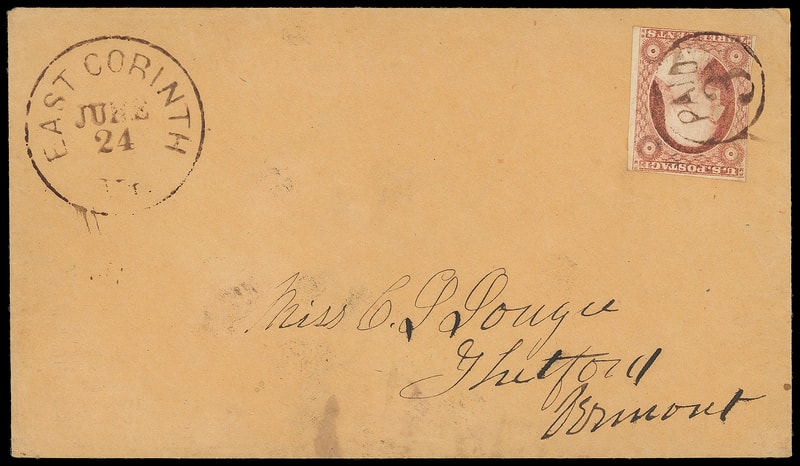 EAST CORINTH
JUNE
24
Vt.
THREE CENTS
PAID
3
U.S. POSTAGE
Miss C. L Dougee
Thetford
Vermont